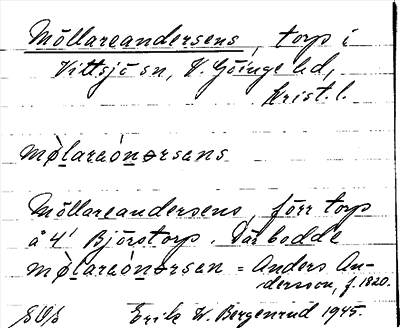 Möllareandersens, torp i
Vittsjö sn, V. Göinge hd,
Krist. l.
mø̀lareón̥ərsens
Möllareandersens, förr torp
å 4¹ Björstorp. Där bodde
mø̀lareón̥ərsen = Anders An-
dersson, f. 1820.
Erik W. Bergenrud 1945.